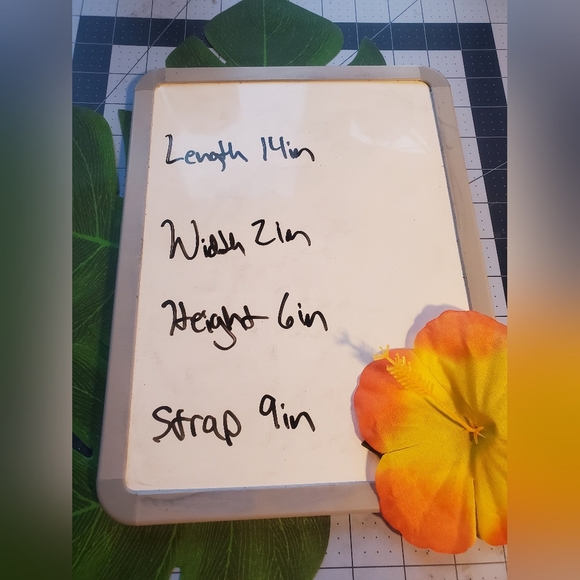 Length 14in
Width 2in
Height 6in
Strap 9in